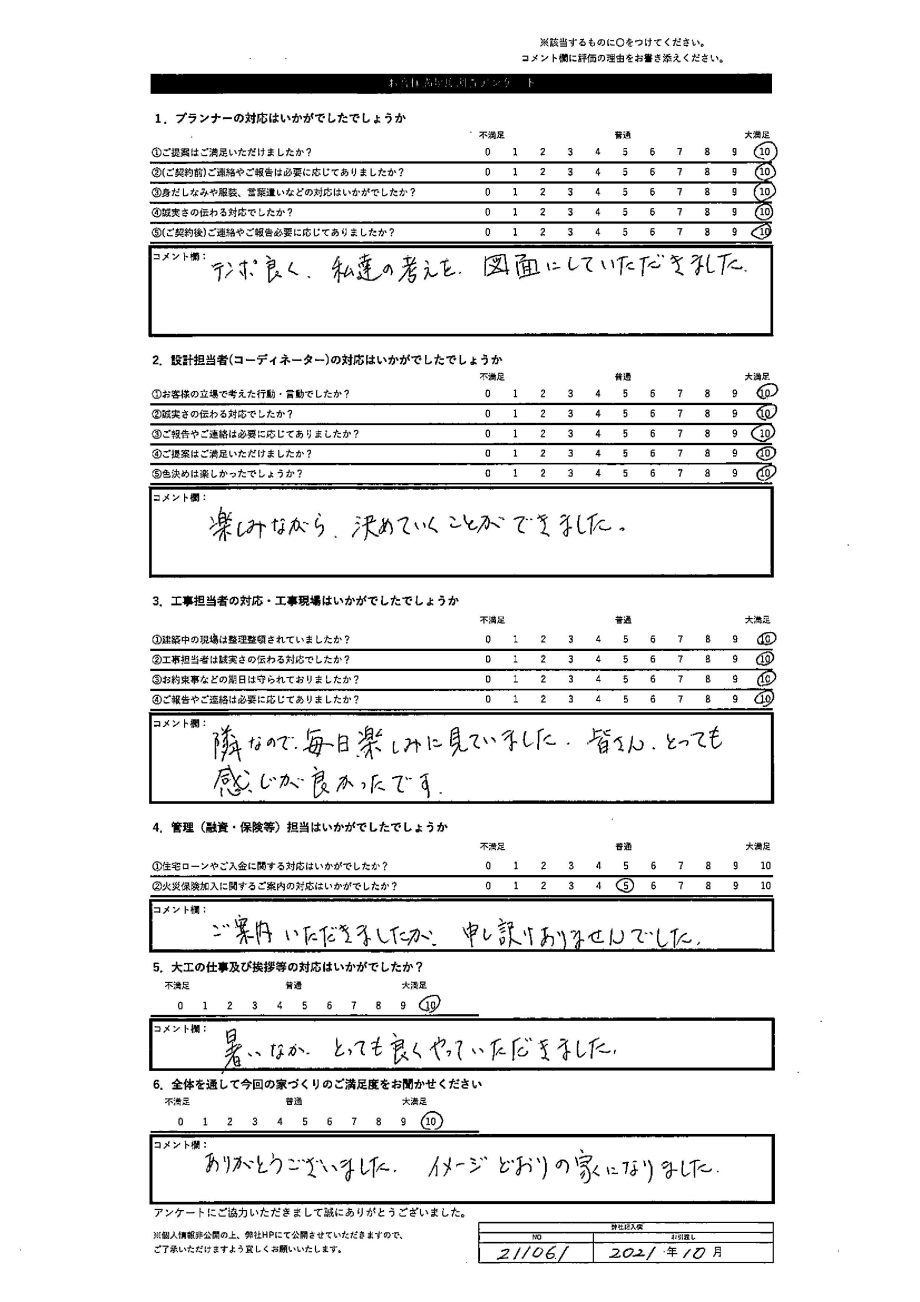 ※該当するものに〇をつけてください。
コメント欄に評価の理由をお書き添えください。
1．プランナーの対応はいかがでしたでしょうか
不満足 普通 大満足
①ご提案はご満足いただけましたか？ 0 1 2 3 4 5 6 7 8 9 10
②(ご契約前)ご連絡やご報告は必要に応じてありましたか？ 0 1 2 3 4 5 6 7 8 9 10
③身だしなみや服装、言葉遣いなどの対応はいかがでしたか？ 0 1 2 3 4 5 6 7 8 9 10
④誠実さの伝わる対応でしたか？ 0 1 2 3 4 5 6 7 8 9 10
⑤(ご契約後)ご連絡やご報告必要に応じてありましたか？ 0 1 2 3 4 5 6 7 8 9 10
コメント欄：
テンポ良く、私達の考えを、図面にしていただきました。
2．設計担当者(コーディネーター)の対応はいかがでしたでしょうか
不満足 普通 大満足
①お客様の立場で考えた行動・言動でしたか？ 0 1 2 3 4 5 6 7 8 9 10
②誠実さの伝わる対応でしたか？ 0 1 2 3 4 5 6 7 8 9 10
③ご報告やご連絡は必要に応じてありましたか？ 0 1 2 3 4 5 6 7 8 9 10
④ご提案はご満足いただけましたか？ 0 1 2 3 4 5 6 7 8 9 10
⑤色決めは楽しかったでしょうか？ 0 1 2 3 4 5 6 7 8 9 10
コメント欄：
楽しみながら、決めていくことができました。
3．工事担当者の対応・工事現場はいかがでしたでしょうか
不満足 普通 大満足
①建築中の現場は整理整頓されていましたか？ 0 1 2 3 4 5 6 7 8 9 10
②工事担当者は誠実さの伝わる対応でしたか？ 0 1 2 3 4 5 6 7 8 9 10
③お約束事などの期日は守られておりましたか？ 0 1 2 3 4 5 6 7 8 9 10
④ご報告やご連絡は必要に応じてありましたか？ 0 1 2 3 4 5 6 7 8 9 10
コメント欄：
隣なので、毎日楽しみに見ていました。皆さん、とっても
感じが良かったです。
4．管理（融資・保険等）担当はいかがでしたでしょうか
不満足 普通 大満足
①住宅ローンやご入金に関する対応はいかがでしたか？ 0 1 2 3 4 5 6 7 8 9 10
②火災保険加入に関するご案内の対応はいかがでしたか？ 0 1 2 3 4 5 6 7 8 9 10
コメント欄：
ご案内いただきましたが、申し訳ありませんでした。
5．大工の仕事及び挨拶等の対応はいかがでしたか？
不満足 普通 大満足
0 1 2 3 4 5 6 7 8 9 10
コメント欄：
暑いなか、とっても良くやっていただきました。
6．全体を通して今回の家づくりのご満足度をお聞かせください
不満足 普通 大満足
0 1 2 3 4 5 6 7 8 9 10
コメント欄：
ありがとうございました。イメージどおりの家になりました。
アンケートにご協力いただきまして誠にありがとうございました。
※個人情報非公開の上、弊社HPにて公開させていただきますので、
ご了承いただけますよう宜しくお願いいたします。
弊社記入欄
NO お引渡し
211061 2021年10月